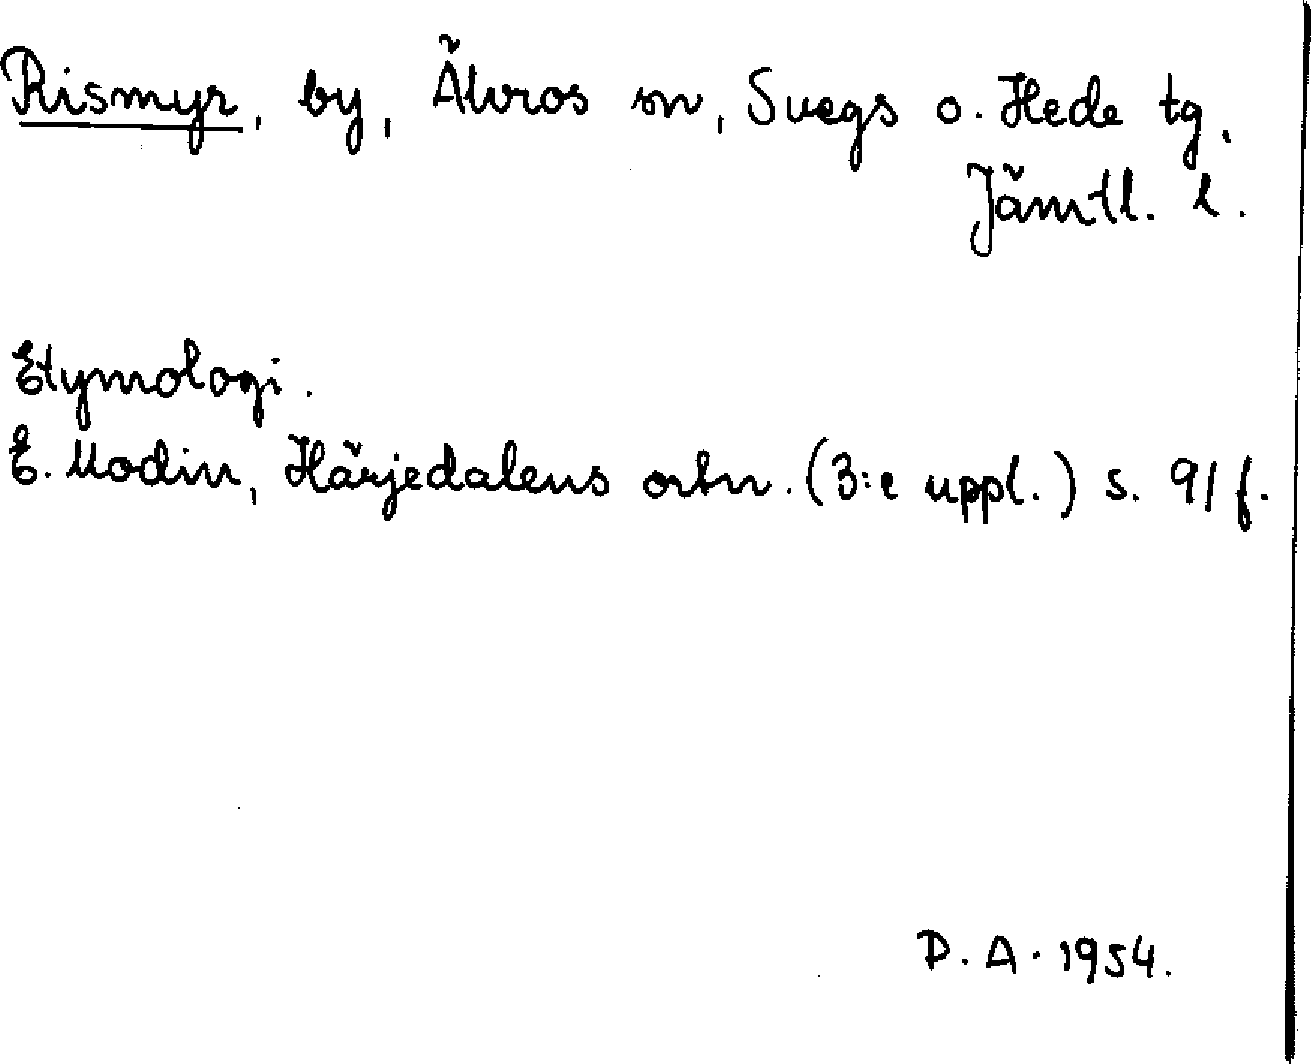 Rismyr, by, Älvros sn, Svegs o. Hede tg,
Jämtl. l.
Etymologi.
E. Modin, Härjedalens ortn. (3:e uppl.) s. 91 f.
D. A. 1954.